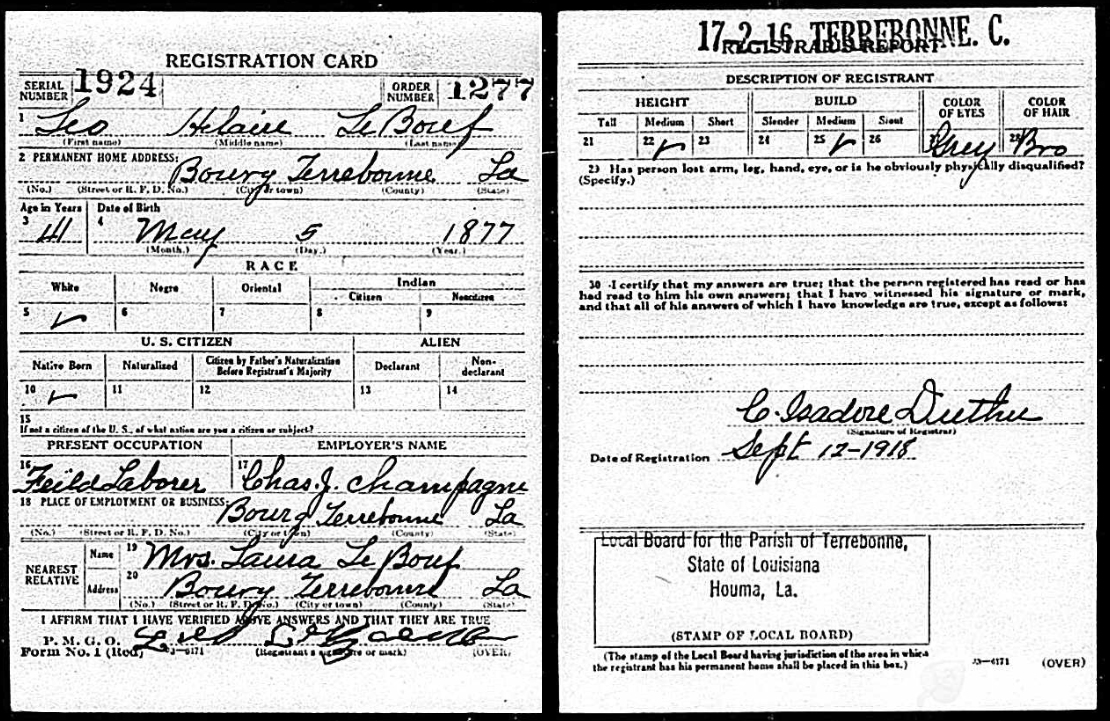 REGISTRATION CARD
SERIAL NUMBER 1924 ORDER NUMBER 1277
1 Leo Helaire LeBouef
(First name) (Middle name) (Last name)
2 PERMANENT HOME ADDRESS:
Bourg Terrebonne La
(No.) (Street or R. F. D. No.) (City or town) (County) (State)
Age in Years Date of Birth
3 41 4 May 5 1877
(Month.) (Day.) (Year.)
RACE
White Negro Oriental Indian
Citizen Noncitizen
5 6 7 8 9
U. S. CITIZEN ALIEN
Native Born Naturalized Citizen by Father's Naturalization Before Registrant's Majority Declarant Non-declarant
10 11 12 13 14
15
If not a citizen of the U. S., of what nation are you a citizen or subject?
PRESENT OCCUPATION EMPLOYER'S NAME
16 Feild Laborer 17 Chas. J. Champagne
18 PLACE OF EMPLOYMENT OR BUSINESS:
Bourg Terrebonne La
(No.) (Street or R. F. D. No.) (City or town) (County) (State)
NEAREST RELATIVE
Name 19 Mrs. Laura Le Bouf
Address 20 Bourg Terrebonne La
(No.) (Street or R. F. D. No.) (City or town) (County) (State)
I AFFIRM THAT I HAVE VERIFIED ABOVE ANSWERS AND THAT THEY ARE TRUE
P. M. G. O.
Form No. 1 (Red) 3—6171 (Registrant's signature or mark) (OVER)
17-2-16 TERREBONNE. C.
REGISTRAR'S REPORT
DESCRIPTION OF REGISTRANT
HEIGHT BUILD COLOR OF EYES COLOR OF HAIR
Tall Medium Short Slender Medium Stout
21 22 23 24 25 26 27 Grey 28 Bro
29 Has person lost arm, leg, hand, eye, or is he obviously physically disqualified?
(Specify.)
30 I certify that my answers are true; that the person registered has read or has
had read to him his own answers; that I have witnessed his signature or mark,
and that all of his answers of which I have knowledge are true, except as follows:
C. Isadore Duthu
(Signature of Registrar)
Date of Registration Sept 12-1918
Local Board for the Parish of Terrebonne,
State of Louisiana
Houma, La.
(STAMP OF LOCAL BOARD)
(The stamp of the Local Board having jurisdiction of the area in which
the registrant has his permanent home shall be placed in this box.)
03—6171 (OVER)